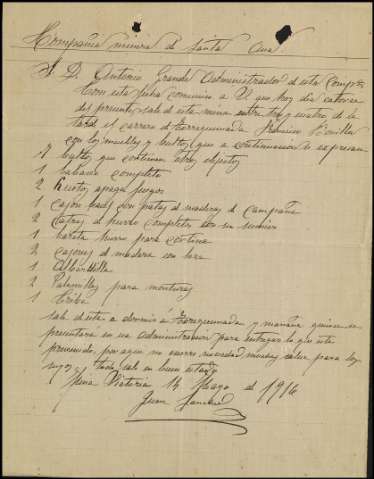 Compañia minera de Santa Ana
S. D. Antonio Grande Administrador de esta Compª
Con esta fecha comunico a V que hoy dia catorce
del presente, sale de esta mina entre tres y cuatro de la
tarde el carrero de Torrequemada Francisco
con los muebles y bultos que a continuacion se expresan
bultos que contienen otros objetos
1 completo
2 apaga fuegos
1 cajon para con patas de madera de Campaña
2 Catres de hierro completos con su
1 hierro para cortina
2 cajones de madera con
1 Albardilla
2 Palomillas para monturas
1 Criba
sale de este a dormir a Torrequemada y mañana quince se
presentará en esa Administracion para entregar lo que este
prevenido, por aqui no ocurre novedad mucha salud para los
suyos y todo sale en buen estado
Mina Victoria 14 Mayo de 1916
Juan Sanchez